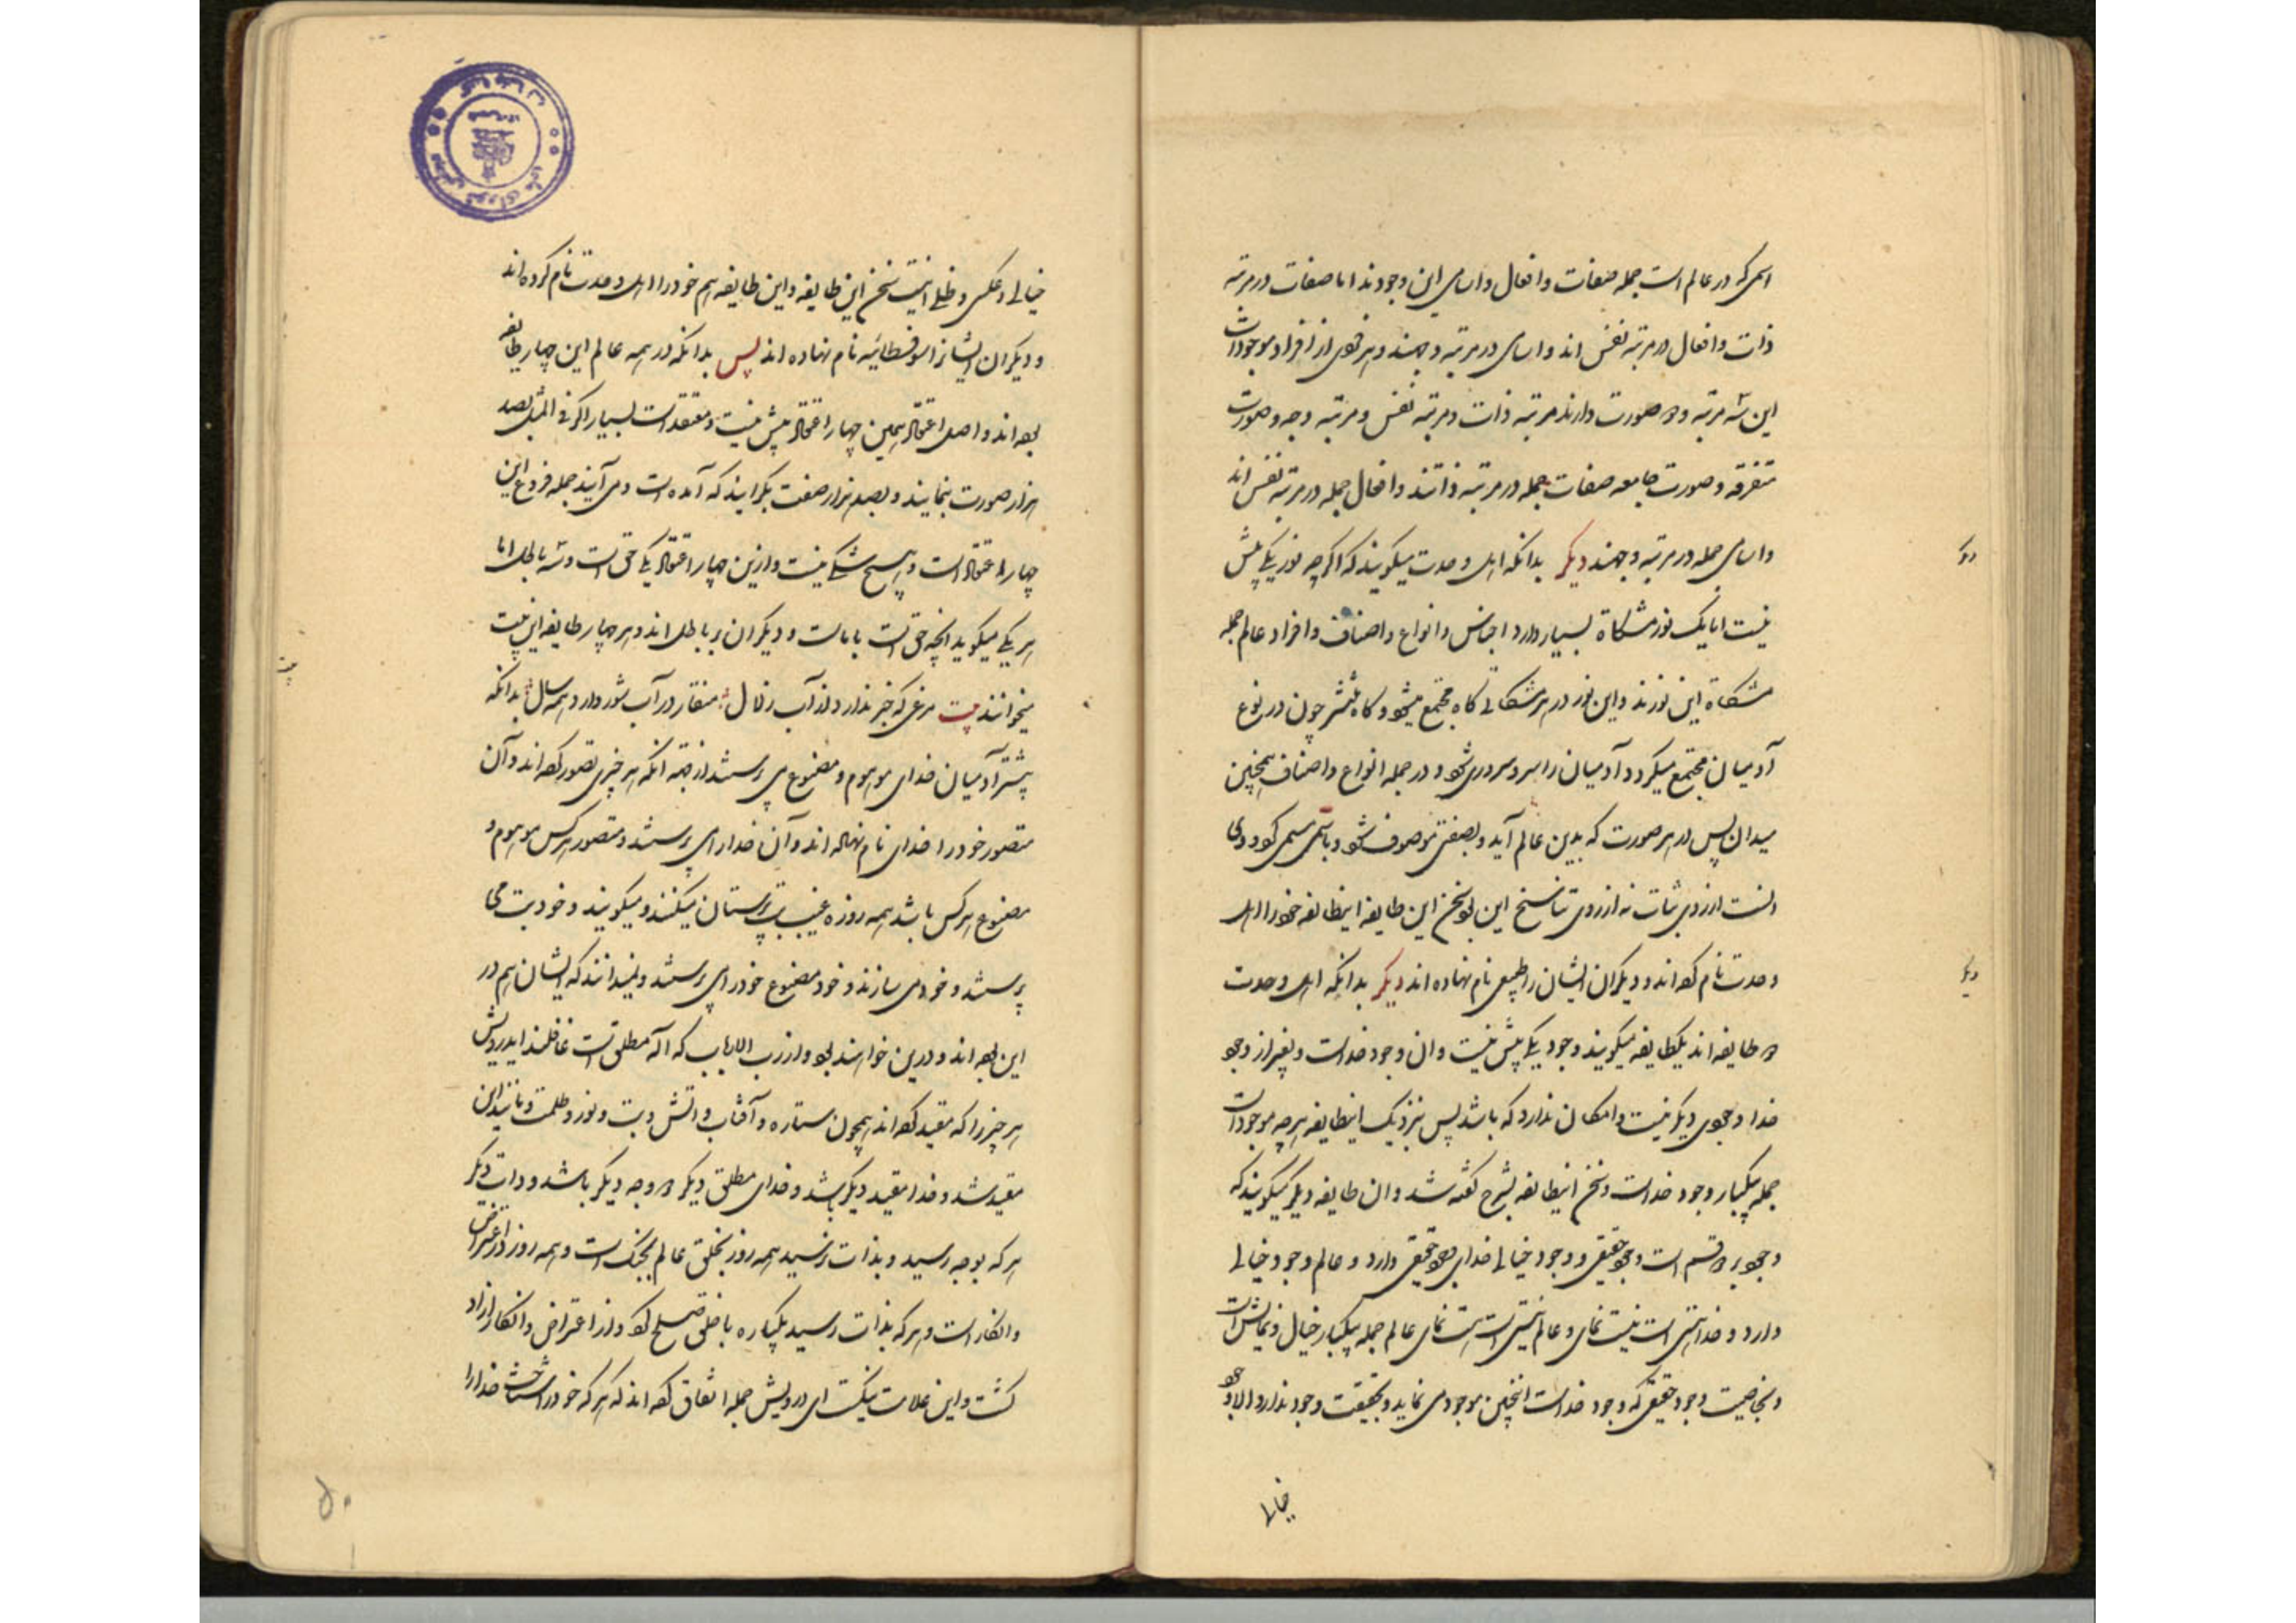 اسمی که در عالم است جمله صفات و افعال و اسامی این وجودند اما صفات در مرتبه
ذات و افعال در مرتبه نفس اند و اسامی در مرتبه وجهند و هر فردی از افراد موجودات
این سه مرتبه و دو صورت دارند مرتبه ذات و مرتبه نفس و مرتبه وجه و صورت
متفرقه و صورت جامعه صفات جمله در مرتبه ذاتند و افعال جمله در مرتبه نفس اند
و اسامی جمله در مرتبه وجهند دیگر بدانکه اهل وحدت میگویند که اگرچه نور یکی بیش
نیست اما یک نور مشکاة بسیار دارد اجناس و انواع و اصناف و افراد عالم جمله
مشکاة این نورند و این نور در هر مشکاتی گاه مجتمع میشود و گاه منتشر چون در نوع
آدمیان مجتمع میگردد آدمیان را سر و سروری شود و در جمله انواع و اصناف همچنین
میدان پس در هر صورت که بدین عالم آید و بصفتی موصوف شود و باسمی مسمی گردد وی
است از روی نه از روی تناسخ این بود سخن این طایفه اینطایفه خود را اهل
وحدت نام کرده اند و دیگران ایشان را نام نهاده اند دیگر بدانکه اهل وحدت
دو طایفه اند یکطایفه میگویند وجود یکی بیش نیست وان وجود خداست و بغیر از وجود
خدا وجودی دیگر نیست و امکان ندارد که باشد پس بنزدیک اینطایفه هرچه موجودات
جمله بیکبار وجود خداست و سخن اینطایفه بشرح گفته شد وان طایفه دیگر میگویند که
وجود بر دو قسم است وجود حقیقی و وجود خیالی خدای وجود حقیقی دارد و عالم وجود خیالی
دارد و خدا هستی است نیست نمای و عالم نیستی است هست نمای عالم جمله بیکبار خیال و نمایش است
و بخاصیت وجود حقیقی که وجود خداست اینچنین موجود می نماید و بحقیقت وجود ندارد الا وجود
خیالی
خیالی و عکسی و ظلی اینست سخن این طایفه و این طایفه هم خود را اهل وحدت نام کرده اند
و دیگران ایشانرا سوفسطائیه نام نهاده اند پس بدانکه در همه عالم این چهار طایفه
بوده اند و اصل اعتقاد همین چهار اعتقاد بیش نیست و معتقد است بسیار اگر فی المثل بصد
هزار صورت بنمایند و بصد هزار صفت بگرایند که آمده است و می آیند جمله فروع این
چهار اعتقاد است و هیچ شکی نیست و ازین چهار اعتقاد یکی حق است و سه باطل اما
هر یکی میگوید انچه حق است با ماست و دیگران بر باطل اند و هر چهار طایفه این بیت
میخوانند بیت مرغی که خبر ندارد از آب زلال منقار در آب شور دارد همه سال بدانکه
بیشتر آدمیان خدای موهوم و مصنوع می پرستند از جهة انکه هر چیزی تصور کرده اند و آن
متصور خود را خدای نام نهاده اند و آن خدا را می پرستند و متصور هر کس موهوم و
مصنوع هر کس باشد همه روزه عیب بت پرستان میکنند و میگویند و خود بت می
پرستند و خود می سازند و خود مصنوع خود را می پرستند و نمیدانند که ایشان هم در
این بوده اند و درین خواهند بود و از رب الارباب که اله مطلق است غافلند ایدرویش
هر چیز را که مقید کرده اند همچون ستاره و آفتاب و اتش و بت و نور و ظلمت و مانند این
مقید شد و خدا مقید دیگر باشد و خدای مطلق دیگر و وجه دیگر باشد و ذات دیگر
هر که بوجه رسید و بذات نرسید همه روز بخلق عالم بجنگ است و همه روز در اعتراض
و انکار است و هر که بذات رسید بیکباره با خلق صلح کرد و از اعتراض و انکار آزاد
گشت و این علامت نیک است ای درویش جمله اتفاق کرده اند که هر که خود را شناخت خدا را